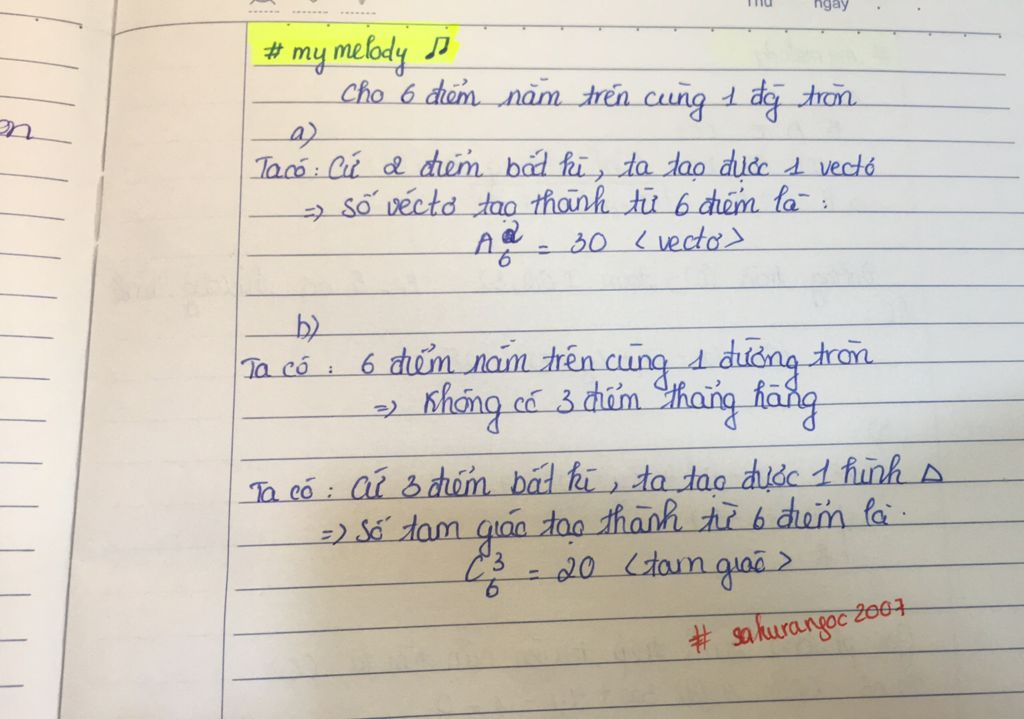 Thứ ngày
en
# my melody ♫
Cho 6 điểm nằm trên cùng 1 đg tròn
a)
Ta có: Cứ 2 điểm bất kì, ta tạo được 1 vectơ
=> Số véctơ tạo thành từ 6 điểm là:
A²₆ = 30 <vectơ>
b)
Ta có: 6 điểm nằm trên cùng 1 đường tròn
=> Không có 3 điểm thẳng hàng
Ta có: Cứ 3 điểm bất kì, ta tạo được 1 hình Δ
=> Số tam giác tạo thành từ 6 điểm là.
C³₆ = 20 <tam giác>
# sakurangoc2007